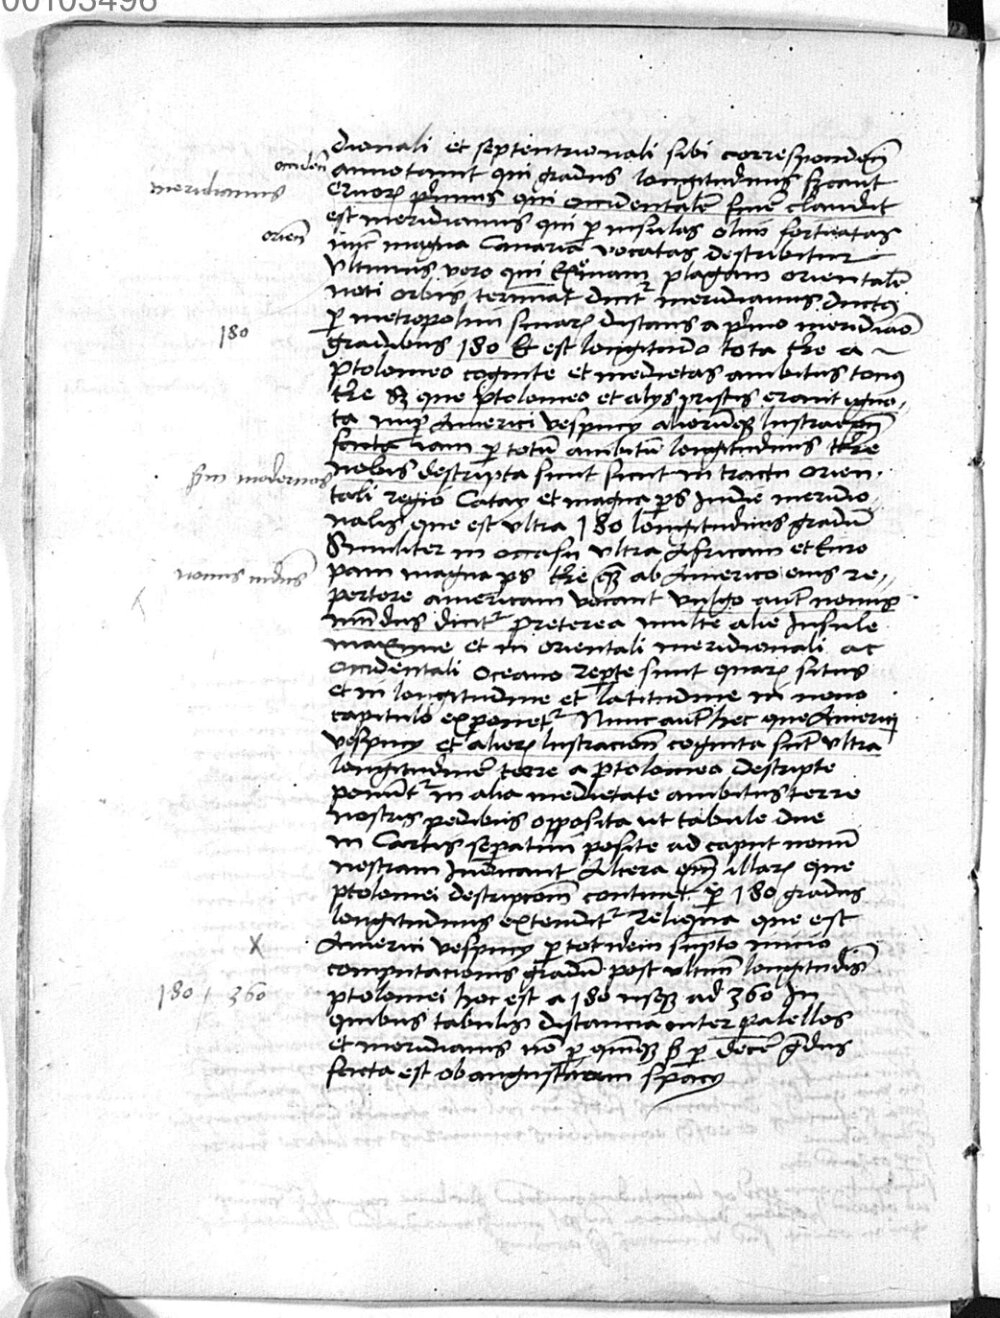 00103496
dionali et septentrionali sibi correspondent
occiden
annotarunt qui gradus longitudinis
meridianus
quorum primus qui occidentalem finem claudit
est meridianus qui per insulas olim fortunatas
orien
nunc magna Canaria vocatas describitur
Ultimus vero qui extremam plagam orientalem
noti orbis terminat dicitur meridianus ductus
per metropolim sinarum distans a primo meridiano
180
gradibus 180 Et est longitudo tota terre a
ptolomeo cognite et medietas ambitus totius
terre Sed que ptolomeo et alys priscis erant igno-
ta nuper Americi vespucy aliorumque lustracione
iam per totum ambitum longitudinis terre
nobis descripta sunt sunt in tractu orien-
secundum modernos
tali regio Catay et magna pars Indie meridio
nalis que est ultra 180 longitudinis gradum
Similiter in occasu ultra Africam et Euro
pam magna pars terre quam ab Americo eius re-
novus mundus
pertore americam vocant vulgo autem novus
mundus dicitur preterea multe alie Insule
maxime et in orientali meridionali ac
occidentali Oceano reperte sunt quarum situs
et in longitudine et latitudine in nono
capitulo exponetur Nunc autem hec que Americi
vespucy et aliorum lustracione cognita sunt ultra
longitudinem terre a ptolomeo descripte
ponuntur in alia medietate ambitus terre
nostris pedibus opposita ut tabule due
in Cartis separatim posite ad caput nonum
nostram Indicant Altera quidem illarum que
ptolomei descriptionem continet per 180 gradus
longitudinis extenditur Reliqua que est
X
Americi vespucy per totidem sumpto inicio
computacionis graduum post ultimum longitudinis
180 / 360
ptolomei hoc est a 180 usque ad 360 In
quibus tabulis distancia inter paralellos
et meridianos non per quinque sed per decem gradus
facta est ob angustiam spacy